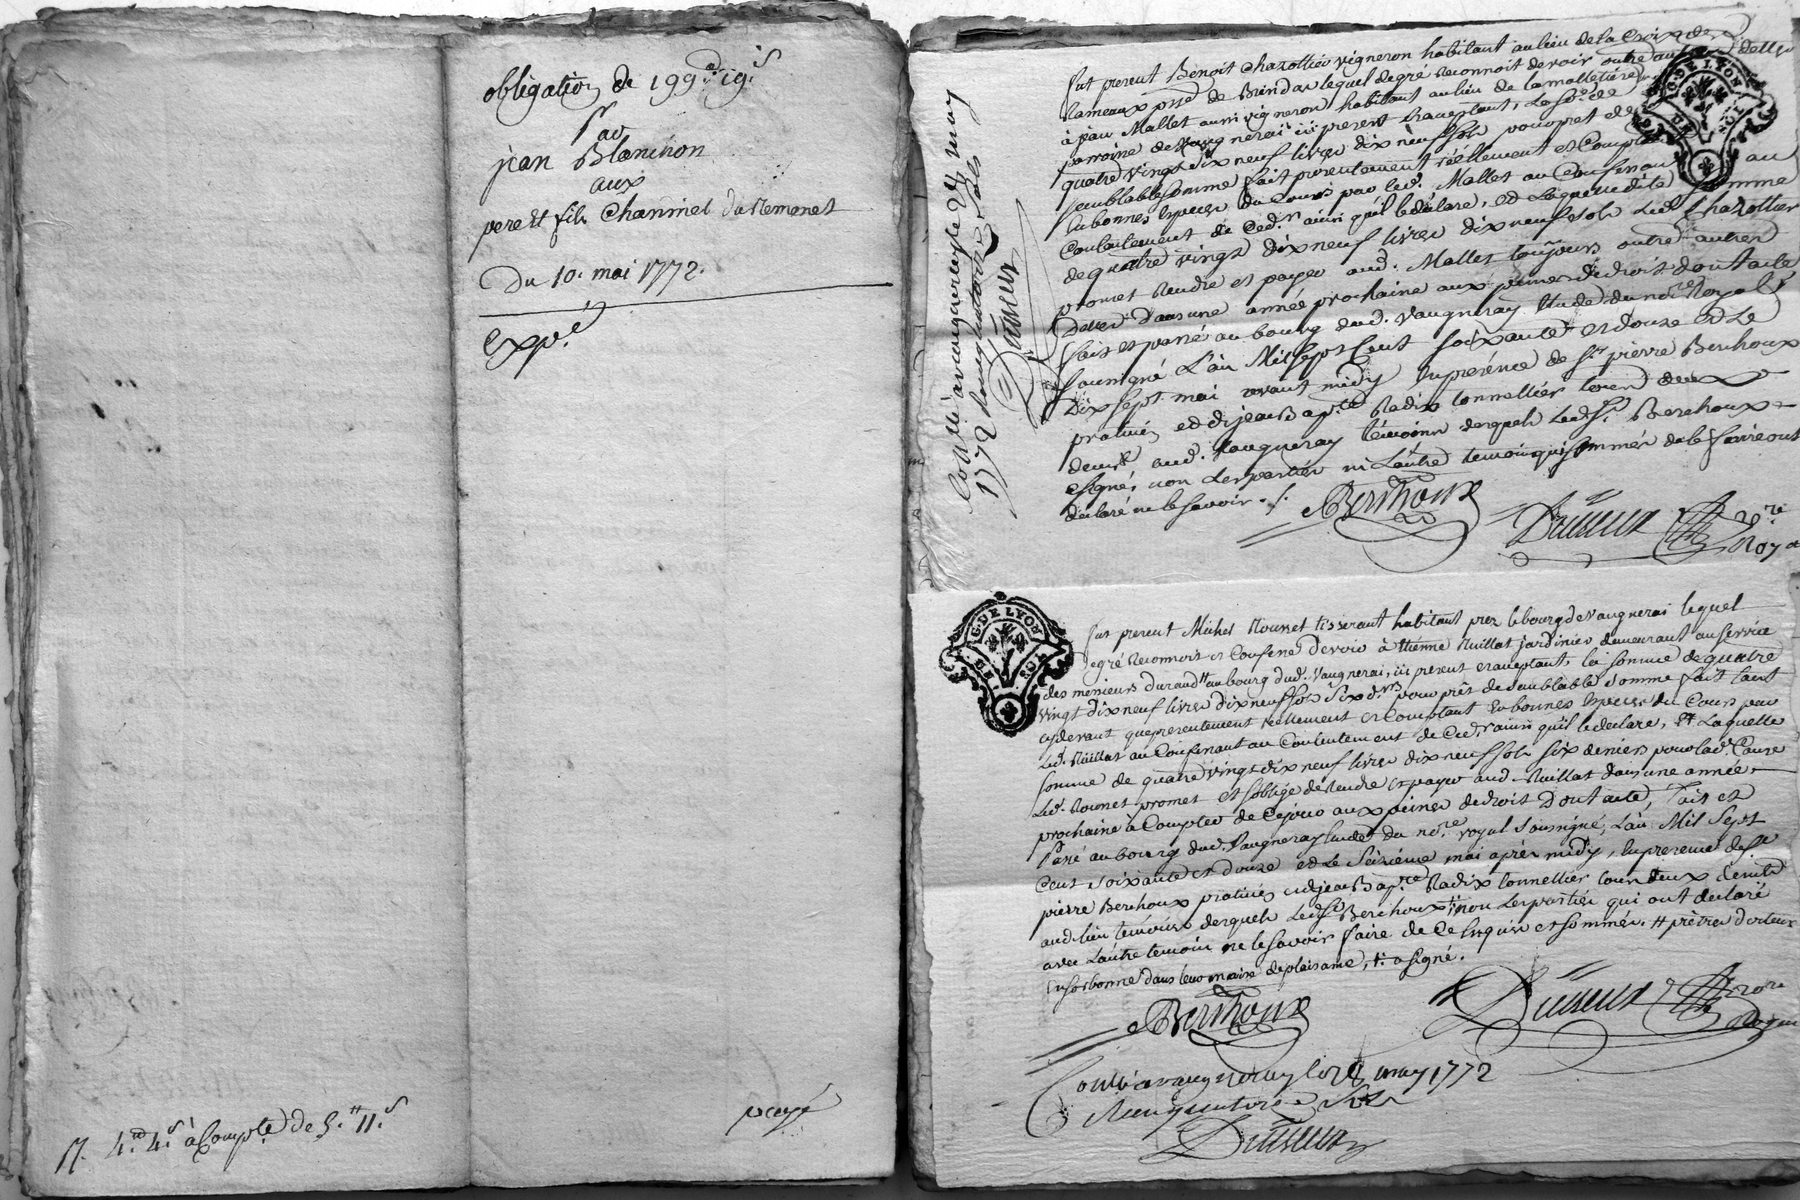 obligation de 199# 19s
Par
jean Blanchon
aux
pere Et fils Chanmel du Remenet
Du 10. mai 1772.
Exp.é
R. 4.# 4.s à Compte de 5.# 11.s
payé
Controllé a vaugneray le 28 may
1772 Reçu quatorze sols
G. DE LYON
Fut present Benoit Chazottier vigneron habitant au lieu de la Croix des
Rameaux psse de Brindas lequel de gré Reconnoit devoir outre autre dette
à jean Mallet aussi vigneron habitant au lieu de la molletiere
parroisse de Vaugnerai ici present et acceptant, La so.e de
quatre vingt dix neuf livres dix neuf sols pour pret de
semblable somme fait presentement réellement et Comptant
En bonnes Especes du Cours par led. Mallet au Consentement au
Contentement de Ced.r ainsi qu'il le déclare, Et Laquelle dite somme
de quatre vingt dix neuf livres dix neuf sols Led. Chazottier
promet Rendre et payer aud. Mallet toujours outre autres
dettes dans une année prochaine aux peines de droit dont acte
fait et passé au bourg dud. Vaugneray Etude du no.re Royal
soussigné L'an Mil Sept Cent soixante et douze et Le
Dix sept mai avant midy En presence de s.r pierre Berchoux
praticien et de jean Bap.te Radix tonnellier tous deux
dem.t aud. Vaugneray témoins desquels led. s.r Berchoux a
signé, non Les parties ni L'autre temoin qui sommés de le faire ont
déclaré ne le savoir ./.
Berchoux
no.re
Royal
G. DE LYON
Fut present Michel Rousset tisserant habitant prez le bourg de Vaugnerai lequel
de gré Reconnoit et Confesse devoir à Etienne Ruillat jardinier demeurant au service
des messieurs durand ## au bourg dud. Vaugnerai, ici present et acceptant, la somme de quatre
vingt dix neuf livres dix neuf sols Six d.rs pour prêt de semblable somme fait tant
cy devant que presentement réellement et Comptant En bonnes Especes du Cours par
Led. Ruillat au Consentement au Contentement de Ced. r ainsi qu'il le declare, Et Laquelle
somme de quatre vingt dix neuf livres dix neuf sols six deniers pour lad. Cause
Led. Rousset promet et s'oblige de Rendre et payer aud. Ruillat dans une année
prochaine à Compter de Cejour aux peines de droit Dont acte, fait et
Passé au bourg dud. Vaugneray Etude du no.re royal soussigné, L'an Mil Sept
Cent soixante et douze et Le Seizieme mai après midy, En presence de s.r
pierre Berchoux praticien et de jean Bap.te Radix tonnellier tous deux dem.t
aud. lieu temoins desquels led. s.r Berchoux ## non Les parties qui ont declaré
avec L'autre temoin ne le savoir faire de Ce Enquis et sommés. ## prêtres docteurs
En sorbonne dans leur maison de plaisance, ## a signé.
Berchoux
no.re
Royal
Controllé a vaugneray le 28 may 1772
Reçu quatorze sols